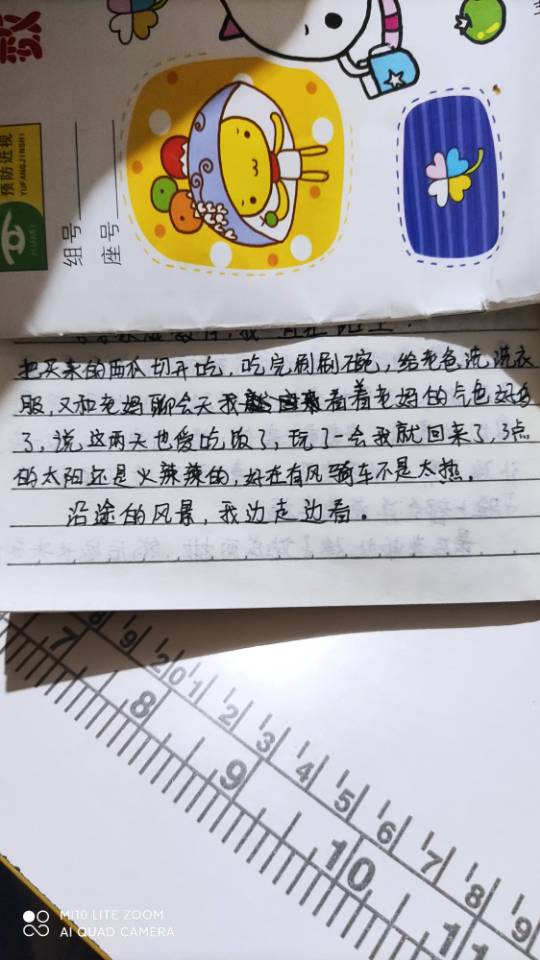 数
预防近视
YUFANGJINSHI
组号
座号
把买来的西瓜切开吃，吃完刷刷碗，给老爸洗洗衣
服，又和老妈聊会天我看着老妈的气色好多
了，说这两天也爱吃饭了，玩了一会我就回来了，3点
的太阳还是火辣辣的，好在有风骑车不是太热。
沿途的风景，我边走边看。
8 9 20 1 2 3 4 5 6 7 8 9
7 8 9 10 11
MI 10 LITE ZOOM
AI QUAD CAMERA